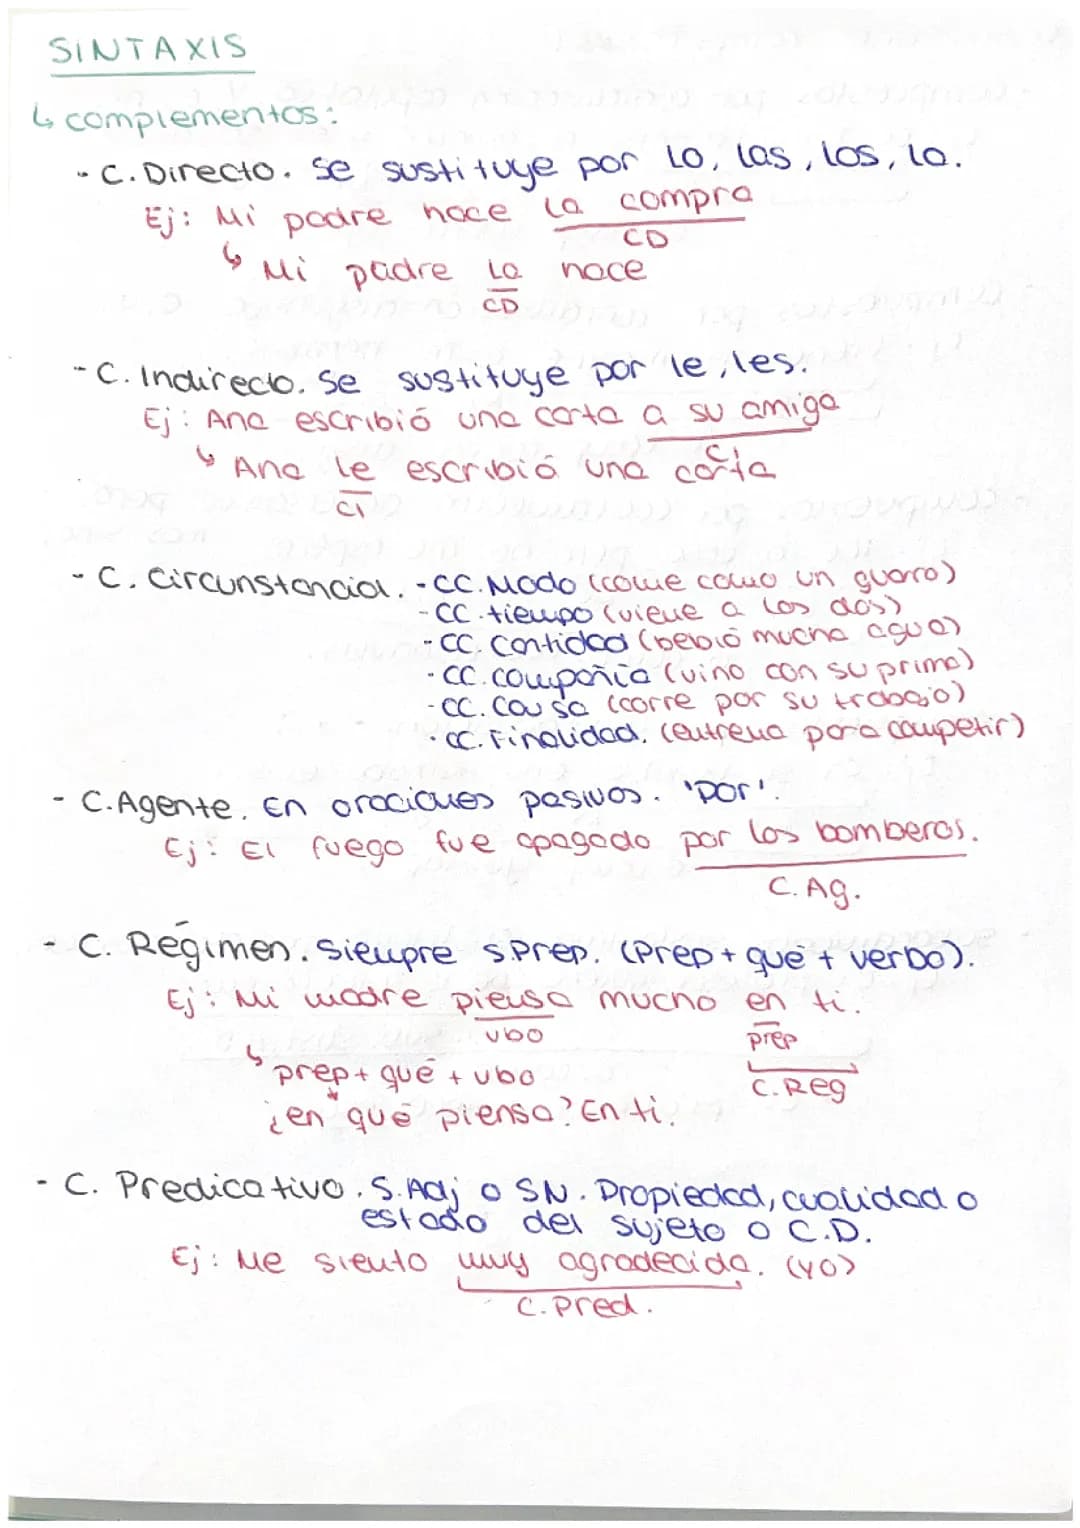 SINTAXIS
↳ complementos:
- C. Directo. Se sustituye por lo, las, los, la.
Ej: Mi padre hace la compra
CD
↳ Mi padre la hace
CD
- C. Indirecto. Se sustituye por le, les.
Ej: Ana escribió una carta a su amiga
CI
↳ Ana le escribió una carta
CI
- C. Circunstancial. - CC. Modo (come como un guarro)
- CC. tiempo (viene a las dos)
- CC. Cantidad (bebió mucha agua)
- CC. compañía (vino con su prima)
- CC. Causa (corre por su trabajo)
- CC. Finalidad. (entrena para competir)
- C. Agente. En oraciones pasivas. 'por'.
Ej: El fuego fue apagado por los bomberos.
C. Ag.
- C. Régimen. Siempre S.Prep. (Prep + que + verbo).
Ej: Mi madre piensa mucho en ti.
vbo prep
↳ prep + qué + vbo C. Reg
¿en qué piensa? En ti.
- C. Predicativo. S. Adj o SN. Propiedad, cualidad o
estado del sujeto o C.D.
Ej: Me siento muy agradecida. (yo)
C. Pred.